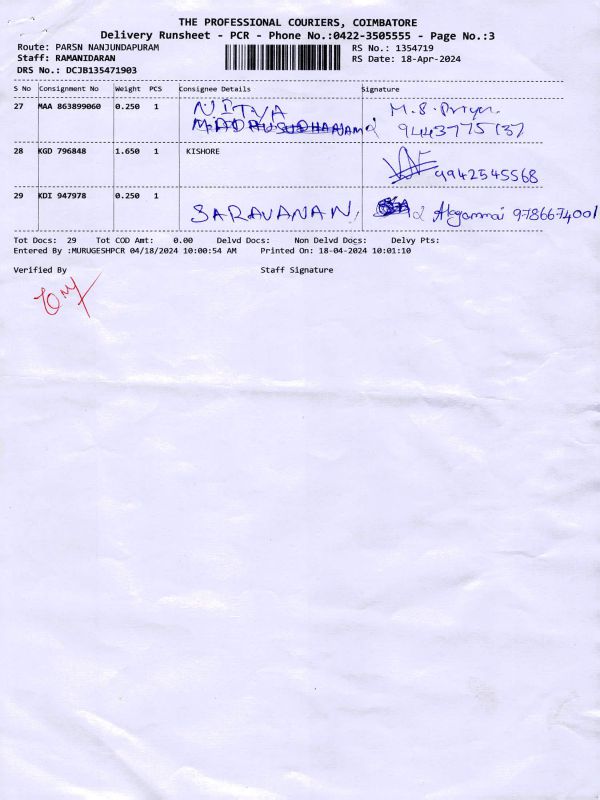 THE PROFESSIONAL COURIERS, COIMBATORE
Delivery Runsheet - PCR - Phone No.:0422-3505555 - Page No.:3
Route: PARSN NANJUNDAPURAM RS No.: 1354719
Staff: RAMANIDARAN RS Date: 18-Apr-2024
DRS No.: DCJB135471903
S No Consignment No Weight PCS Consignee Details Signature
27 MAA 863899060 0.250 1 NITYA M.S. Priya
9443775137
28 KGD 796848 1.650 1 KISHORE
9942545568
29 KDI 947978 0.250 1 SARAVANAN Alagammai 9786674001
Tot Docs: 29 Tot COD Amt: 0.00 Delvd Docs: Non Delvd Docs: Delvy Pts:
Entered By :MURUGESHPCR 04/18/2024 10:00:54 AM Printed On: 18-04-2024 10:01:10
Verified By Staff Signature